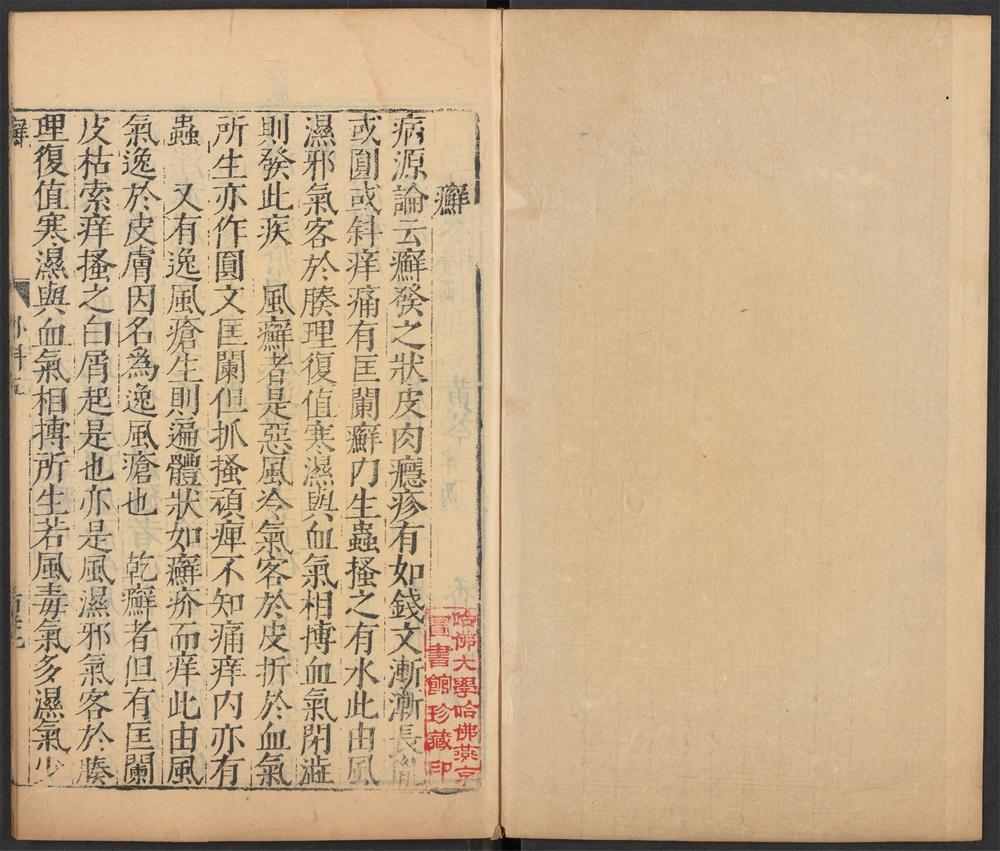 癬
病源論云癬發之狀皮肉癮疹有如錢文漸漸長
或圓或斜痒痛有匡闌癬內生蟲搔之有水此由風
濕邪氣客於腠理復值寒濕與血氣相搏血氣閉澁
則發此疾　風癬者是惡風冷氣客於皮折於血氣
所生亦作圓文匡闌但抓搔頑痺不知痛痒內亦有
蟲　又有逸風瘡生則遍體狀如癬疥而痒此由風
氣逸於皮膚因名為逸風瘡也　乾癬者但有匡闌
皮枯索痒搔之白屑起是也亦是風濕邪氣客於腠
理復值寒濕與血氣相搏所生若風毒氣多濕氣少
癬
外科五
哈佛大學哈佛燕京
圖書館珍藏印